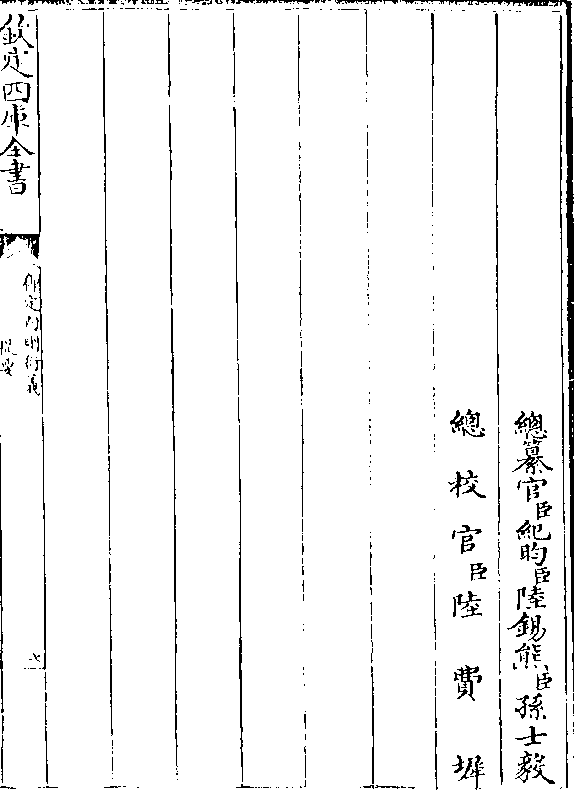 總纂官臣紀昀臣陸錫熊臣孫士毅
總校官臣陸費墀
欽定四庫全書
御定內則衍義
提要